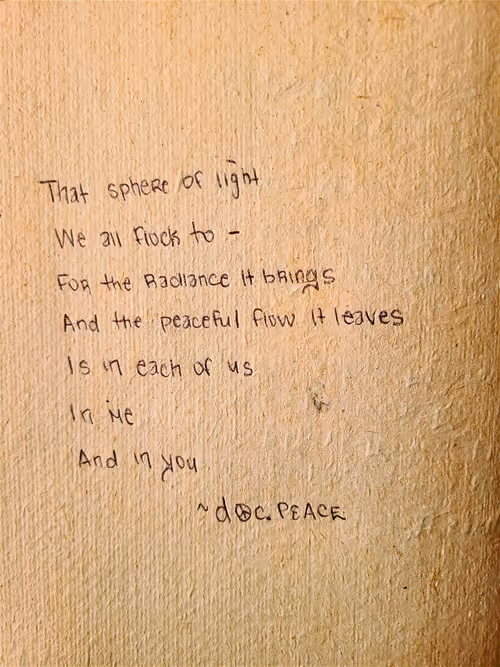 That sphere of light
We all flock to -
For the Radiance it brings
And the peaceful flow it leaves
Is in each of us
In Me
And in you
~ d☮c. PEACE